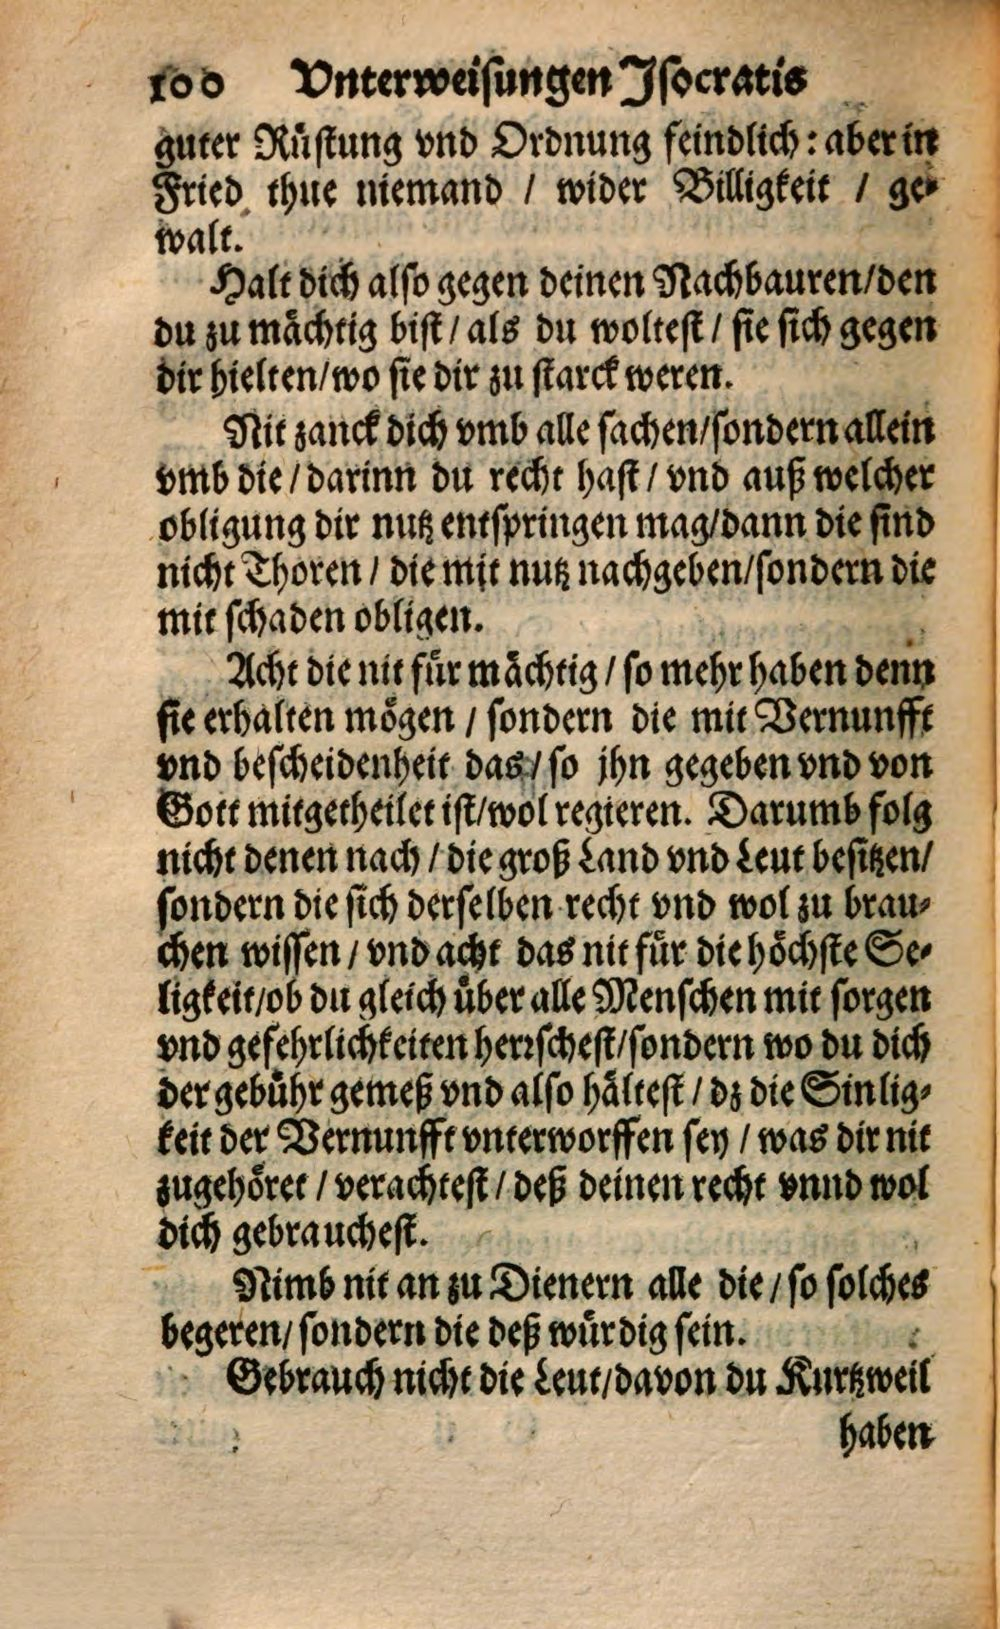 100 Vnterweisungen Jsocratis
guter Rüstung vnd Ordnung feindlich: aber in
Fried thue niemand / wider Billigkeit / ge-
walt.
Halt dich also gegen deinen Nachbauren/den
du zu mächtig bist / als du woltest / sie sich gegen
dir hielten/wo sie dir zu starck weren.
Nit zanck dich vmb alle sachen/sondern allein
vmb die / darinn du recht hast / vnd auß welcher
obligung dir nutz entspringen mag/dann die sind
nicht Thoren / die mit nutz nachgeben/sondern die
mit schaden obligen.
Acht die nit für mächtig / so mehr haben denn
sie erhalten mögen / sondern die mit Vernunfft
vnd bescheidenheit das / so jhn gegeben vnd von
Gott mitgetheilet ist/wol regieren. Darumb folg
nicht denen nach / die groß Land vnd Leut besitzen/
sondern die sich derselben recht vnd wol zu brau-
chen wissen / vnd acht das nit für die höchste Se-
ligkeit/ob du gleich über alle Menschen mit sorgen
vnd gefehrlichkeiten herrschest/sondern wo du dich
der gebühr gemeß vnd also hältest / dz die Sinlig-
keit der Vernunfft vnterworffen sey / was dir nit
zugehöret / verachtest / deß deinen recht vnnd wol
dich gebrauchest.
Nimb nit an zu Dienern alle die / so solches
begeren/ sondern die deß würdig sein.
Gebrauch nicht die Leut/davon du Kurtzweil
haben